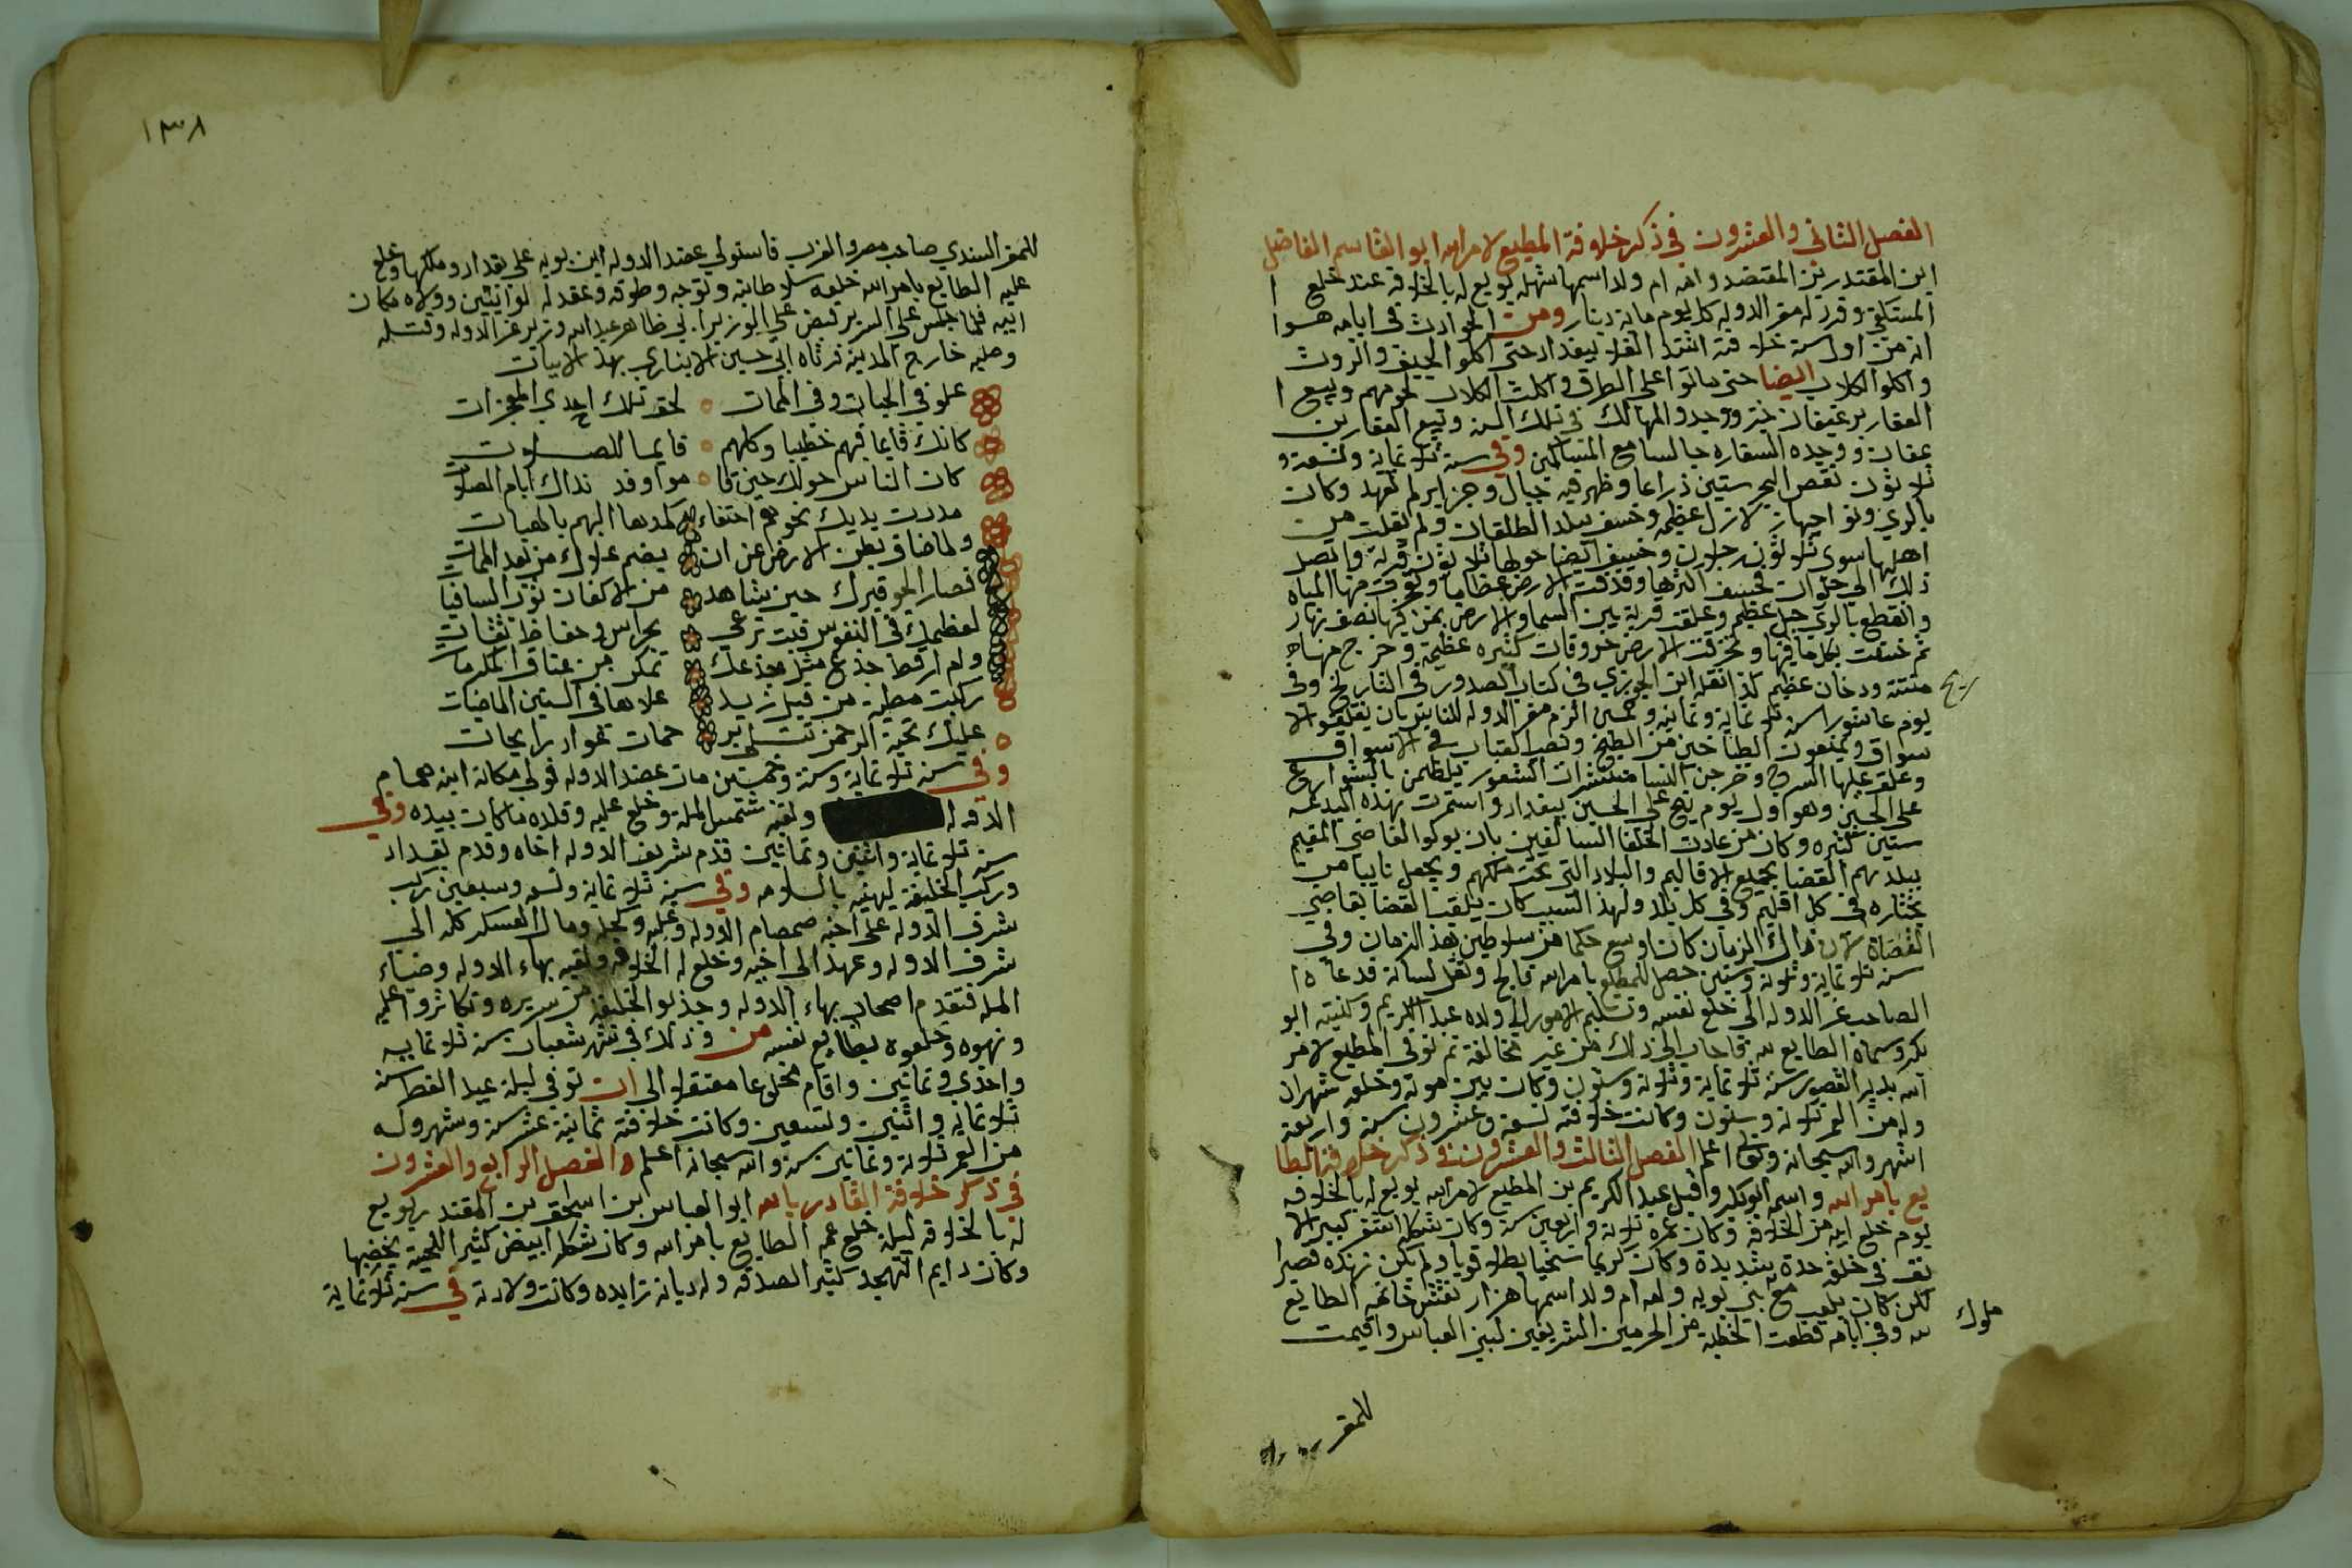 الفصل الثاني والعشرون في ذكر خلافة المطيع لامر الله ابو القاسم الفاضل
ابن المقتدر بن المقتضد وامه ام ولد اسمها شهله بويع له بالخلافة عند خلع ا
المستكفي وقرر له معز الدوله كل يوم مائة دينار ومن الحوادث في ايامه هوا
انه من اول سنة خلافته اشتد الغلا ببغداد حتى اكلوا الجيف والروث
واكلوا الكلاب ايضا حتى ماتوا على الطرق واكلت الكلاب لحومهم وبيع ا
العقار برغيفان خبز ووجد والمهالك في تلك السنه وبيع العقار بن
وفي سنة ثلاثمائة وتسعة و
ثلاثون نقص البحر ستين ذراعا وظهر فيه جبال وجزاير لم تعهد وكان
بالري ونواحيها زلازل عظيمه وخسف ببلد الطلقان ولم يفلت من
اهلها سوى ثلاثون رجلا وخسف ايضا حولها ثلاثون قرية واتصل
ذلك الى حلوان فخسف اكثرها وقذفت الارض عظاما وتفجرت منها المياه
وانقطع بالري جبل عظيم وعلقت قرية بين السما والارض بمن فيها نصف نهار
ثم خسفت بكل ما فيها وانخرقت الارض خروقات كثيره عظيمة وخرج منها ماء
منتنة ودخان عظيم كذا نقله ابن الجوزي في كتاب الصدور في التاريخ وفي
يوم عاشورا سنة ثلاثمائة وثمانيه وخمسين الزم معز الدوله للناس بان يغلقوا الا
سواق ويمنعون الطباخين من الطبخ ونصب القباب في الاسواق
وعلق عليها السرج وخرجن النسا منتشرات الشعور يلطمن بالشوارع
على الحسين وهو اول يوم نيح على الحسين ببغداد واستمرت بهذه البدعه
سنين كثيره وكان من عادت الخلفا السالفين بان يولوا القاضي المقيم
ببلدهم القضا بجميع الاقاليم والبلاد التي تحت ملكهم ويجعل نايبا من
يختاره في كل اقليم وفي كل بلد ولهذا السبب كان يلقب القضا بقاضي
القضاة لان ذلك الزمان كان اوسع حكما من سلاطين هذا الزمان وفي
سنة ثلاثمائة وثلاثة وستين حصل للمطيع بامر الله فالج وثقل لسانه فدعاه ا
الصاحب عز الدوله الى خلع نفسه وتسليم الامور الى ولده عبد الكريم وكنيته ابو
بكر وسماه الطايع لله فاجاب الى ذلك من غير مخالفة ثم توفي المطيع لامر
الله بدير القصر سنة ثلاثمائة وثلاثة وستون وكان بين موته وخلعه شهران
وله من العمر ثلاثة وستون وكانت خلافته تسعة وعشرون سنة واربعة
اشهر والله سبحانه وتعالى اعلم الفصل الثالث والعشرون في ذكر خلافة الطا
يع بامر الله واسمه ابو بكر وقيل عبد الكريم بن المطيع لامر الله بويع له بالخلافه
يوم خلع ابيه من الخلافه وكان عمره ثلاثة واربعين سنة وكان شكله اشقر كبير الا
نف في خلقه حدة شديدة وكان كريما سخيا بطلا قويا ولم يكن زنده قصيرا
لكن كان يلعب مع بني بويه وامه ام ولد اسمها هزار نقش خاتمه الطايع
لله وفي ايامه قطعت الخطبة من الحرمين الشريفين لبني العباس واقيمت
ملوك
للمعز
١٣٨
للمعز السندي صاحب مصر والغرب فاستولى عضد الدوله ابن بويه على بغداد وملكها وخلع
عليه الطايع بامر الله خلعه سلاطانيه وتوجه وطوقه وعقد له لوائين وولاه مكان
ابيه فلما جلس على السرير قبض على الوزير ابي طاهر عبد الله وزير عز الدوله وقتله
وصلبه خارج المدينة فرثاه ابي حسين الانباري بهذا الابيات
علو في الحيات وفي الممات لحق تلك احدي المعجزات
كانك قايما فيهم خطيبا وكلهم قايما للصلوت
كان الناس حولك حين قا موا وفد نداك ايام الصلات
مددت يديك نحوهم احتفاء كمدهما اليهم بالهبات
ولما ضاق بطن الارض عن ان يضم علاك من بعد الممات
فصار الجو قبرك حين شاهد من الاكفان ثوب السافيات
لعظمك في النفوس فبت ترعى بحراس وحفاظ ثقات
ولم ار قط جذع مثل جذعك تمكن من عناق المكرمات
ركبت مطية من قبل زيد علاها في السنين الماضيات
عليك تحية الرحمن تتلى برحمات غواد رايحات
وفي سنة ثلاثمائة وسنة وخمسين مات عضد الدوله فولى مكانه ابنه همام
الدوله ولقبه شمس المله وخلع عليه وقلده ما كان بيده وفي
سنة ثلاثمائة واثنين وثمانين قدم شريف الدوله اخاه وقدم بغداد
وركب الخليفة ليهنيه بالسلامه وفي سنة ثلاثمائة وتسعه وسبعين ركب
شرف الدوله على اخيه صمصام الدوله وغلبه وكحله ومال العسكر كله الى
شرف الدوله وعهد الى اخيه وخلع له الخلافه ولقبه بهاء الدوله وضياء
المله فتقدم اصحاب بهاء الدوله وجذبوا الخليفة من سريره وتكاثروا عليه
ونهبوه وخلعوه بطايع نفسه من وذلك في شهر شعبان سنة ثلاثمايه
واحدي وثمانين واقام مخلوعا معتقلا الى ان توفي ليلة عيد الفطر سنة
ثلاثمايه واثنين وتسعين وكانت خلافته ثمانية عشر سنة وشهر وله
من العمر ثلاثة وثمانين سنة والله سبحانه اعلم والفصل الرابع والعشرون
في ذكر خلافة القادر بالله ابو العباس ابن اسحق بن المقتدر بويع
له بالخلافة ليلة خلع عمه الطايع بامر الله وكان شكله ابيض كثير اللحية يخضبها
وكان دايم التهجد كثير الصدقه وله ديانه ترايده وكانت ولادته في سنة ثلاثمائة